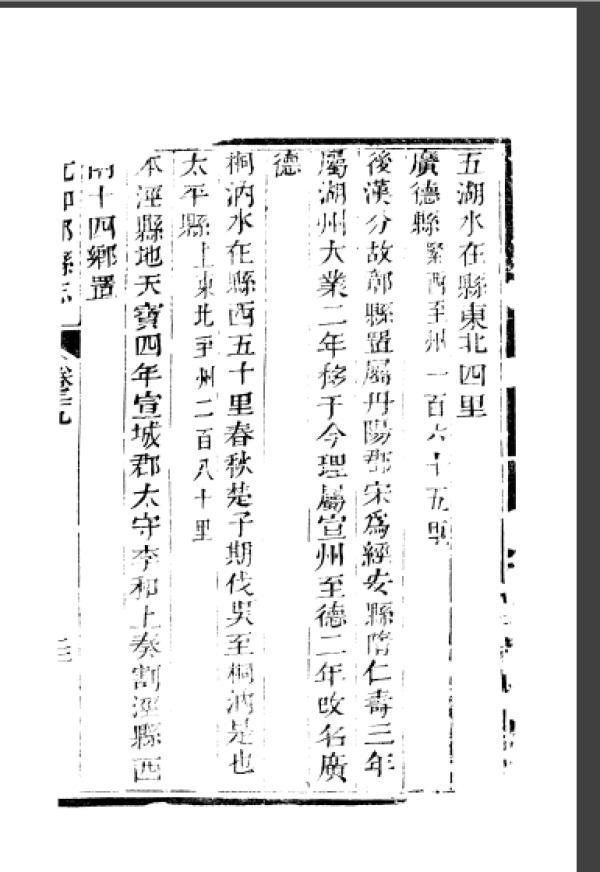 五湖水在縣東北四里
廣德縣緊西至州一百六十五里
後漢分故鄣縣置屬丹陽郡宋爲綏安縣隋仁壽三年
屬湖州大業二年移于今理屬宣州至德二年改名廣
德
桐汭水在縣西五十里春秋楚子期伐吳至桐汭是也
太平縣上東北至州二百八十里
本涇縣地天寶四年宣城郡太守李和上奏割涇縣西
南十四鄉置
元和郡縣志 卷二九